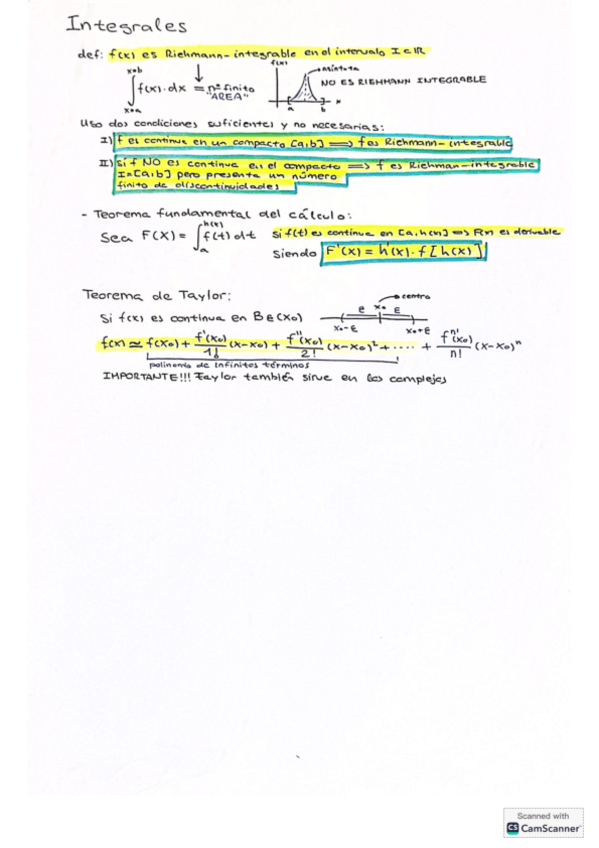 Integrales
def: f(x) es Riehmann-integrable en el intervalo I ∈ ℝ
∫ f(x)·dx = nº finito "AREA"
x=b
x=a
f(x)
NO ES RIEHMANN INTEGRABLE
a b x
Uso dos condiciones suficientes y no necesarias:
I) f es continua en un compacto [a,b] ⟹ f es Riehmann-integrable
II) si f NO es continua en el compacto ⟹ f es Riehman-integrable
I=[a,b] pero presenta un número
finito de discontinuidades
- Teorema fundamental del cálculo:
Sea F(x) = ∫ₐ^h(x) f(t) dt si f(t) es continua en [a,h(x)] ⟹ F(x) es derivable
siendo F'(x) = h'(x)·f[h(x)]
Teorema de Taylor:
centro
Si f(x) es continua en Bε(x₀)
ε x₀ ε
x₀-ε x₀+ε
f(x) ≃ f(x₀) + f'(x₀)/1! (x-x₀) + f''(x₀)/2! (x-x₀)² + ···· + fⁿ⁾(x₀)/n! (x-x₀)ⁿ
polinomio de infinitos términos
IMPORTANTE!!! Taylor también sirve en los complejos
Scanned with
CS CamScanner